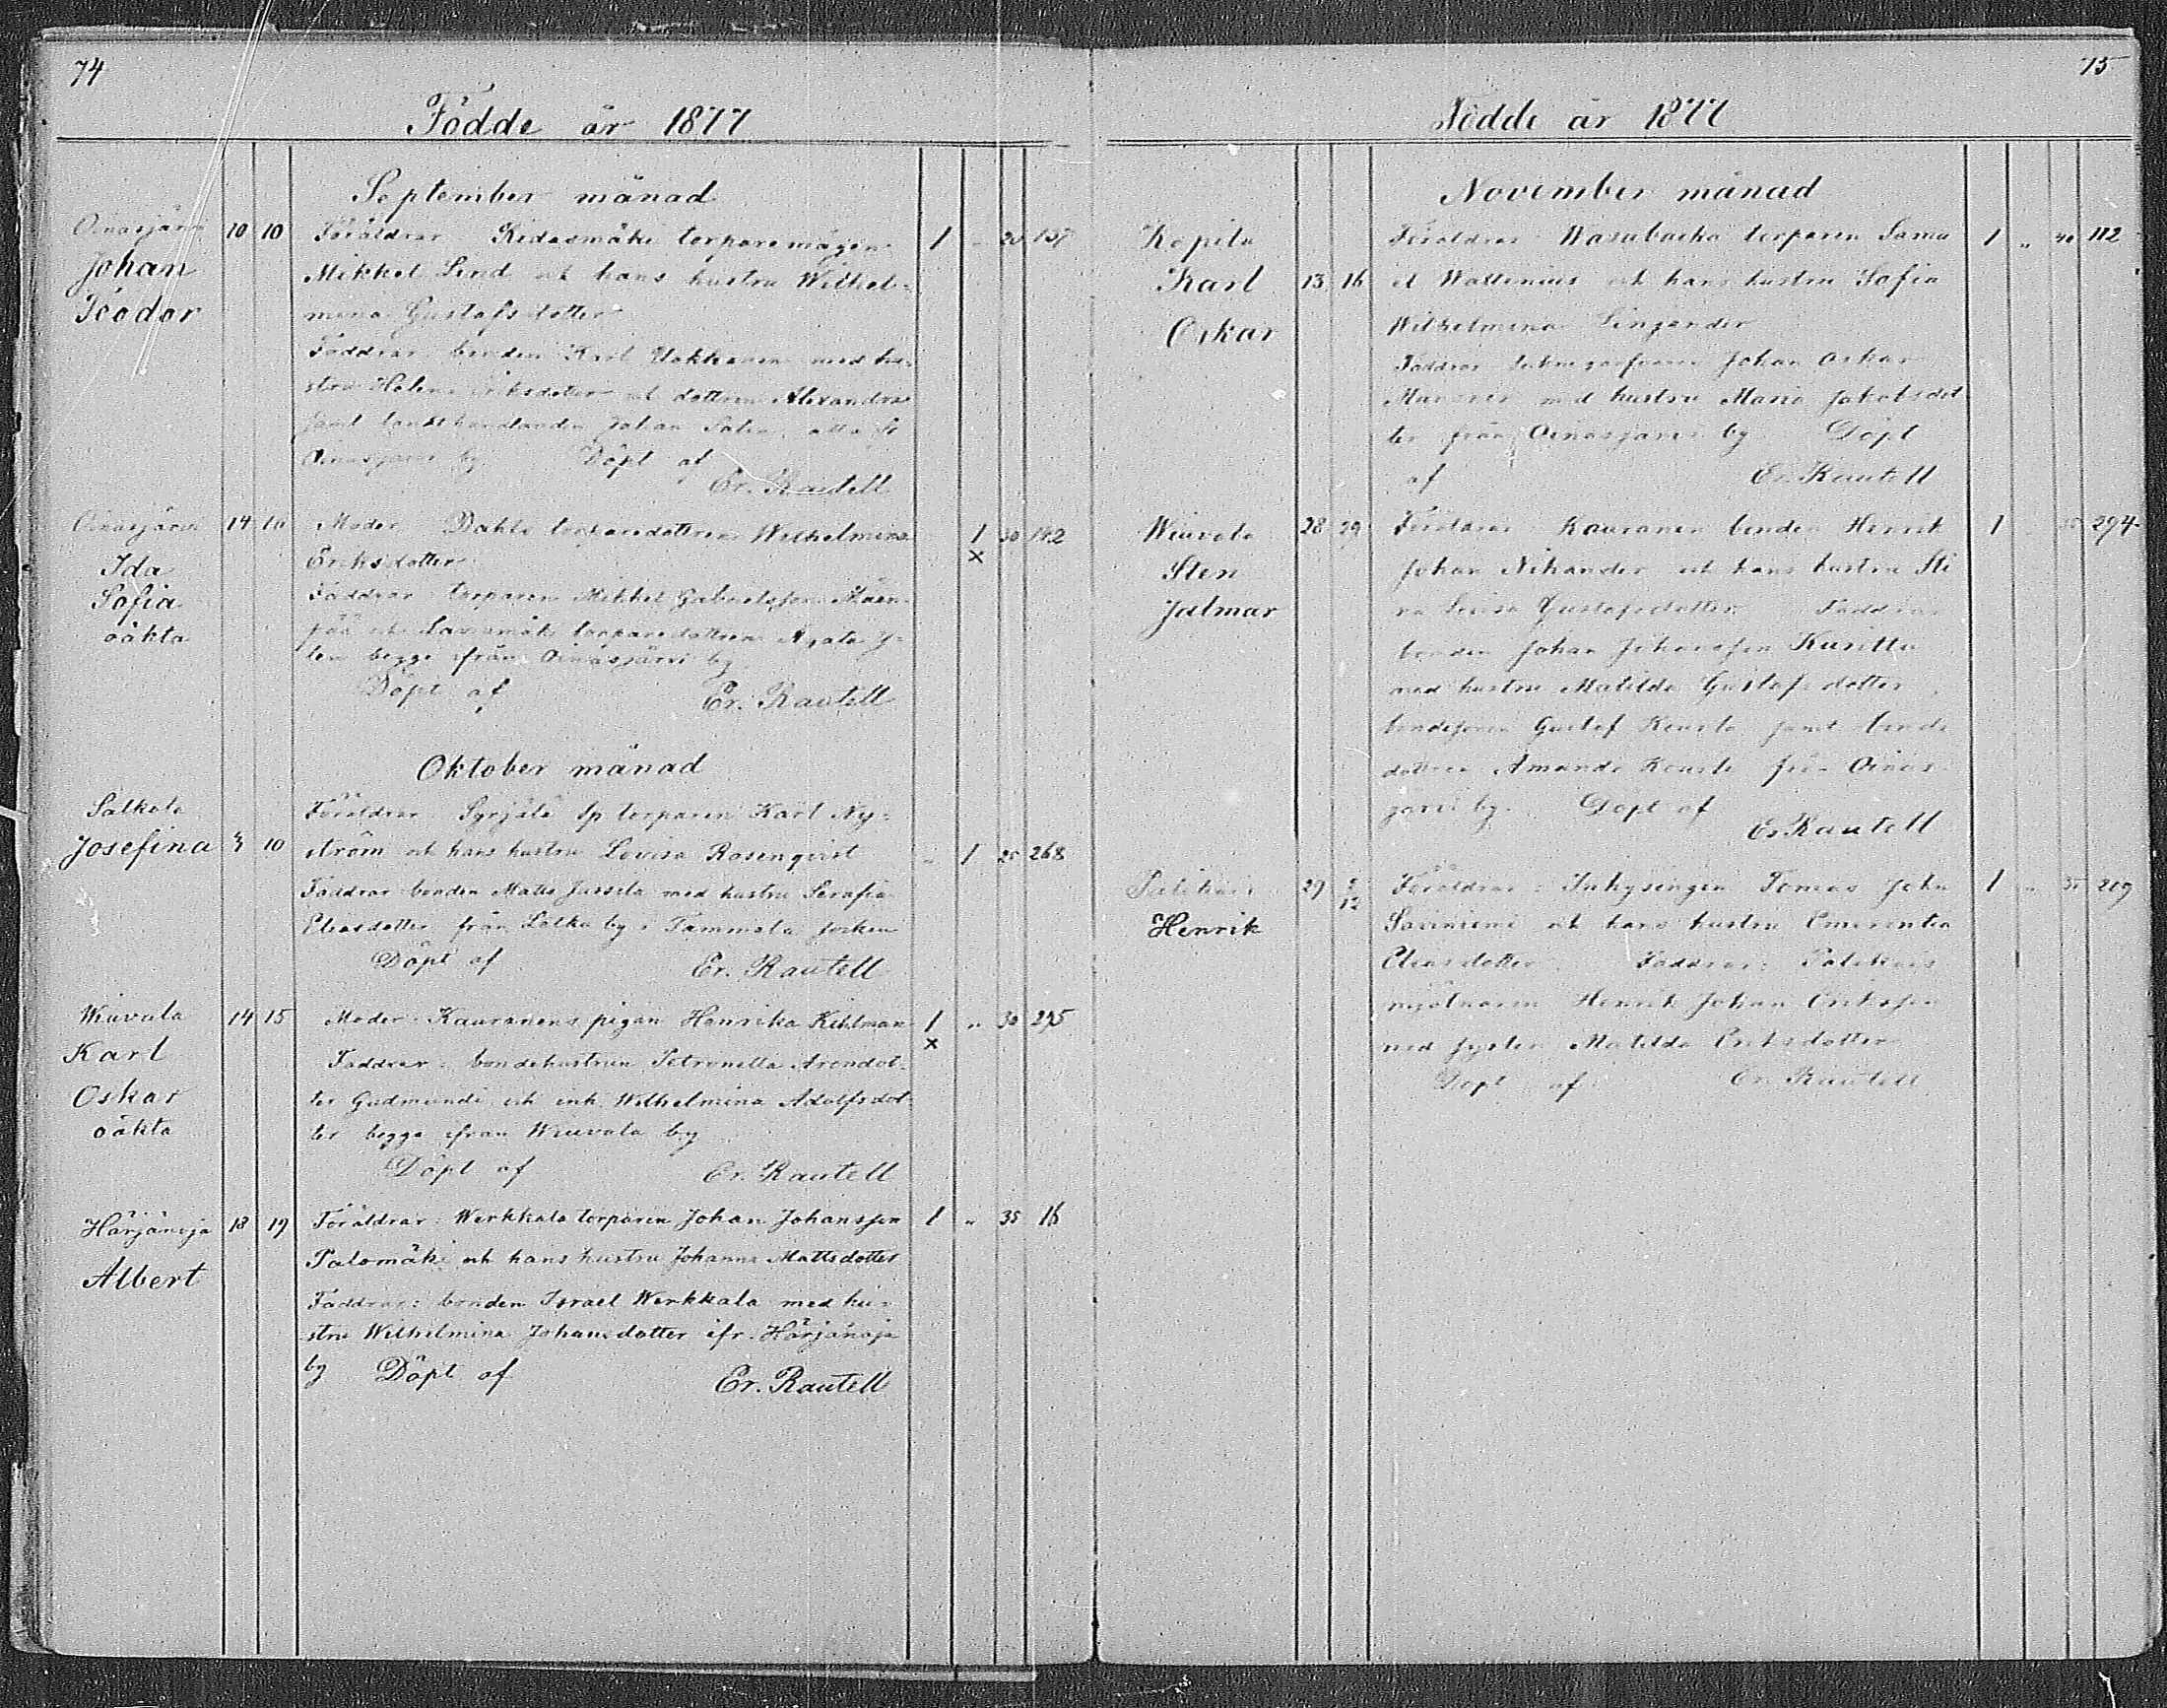 74
Födde år 1877
September månad
Oinasjärvi 10 10 Föräldrar torparemågen 1 " 137
Johan Mikkel Lind och hans hustru Wilhel-
Teodor mina Gustafsdotter
Faddrar bonden med hu-
stru Helena Eriksdotter och dottren Alexandra
samt landthandlanden Johan alla fr
Oinasjärvi by Döpt af
Er. Rautell
Oinasjärvi 14 10 Moder Dahlo torparedottren Wilhelmina 1 30 142
Ida Eriksdotter x
Sofia Faddrar torparen Mikkel Gabrielsson Mäen-
oäkta pää och torparedottren Agata
begge ifrån Oinasjärvi by
Döpt af Er. Rautell
Oktober månad
Salkola Föräldrar Syrjälä Sp torparen Karl Ny-
Josefina 3 10 ström och hans hustru Lovisa Rosenqvist " 1 25 268
Faddrar bonden Matts Jussila med hustru Serafia
Eliasdotter från by i Tammela socken
Döpt af Er. Rautell
Wiuvala 14 15 Moder: Kauranens pigan Henrika Kihlman 1 " 30 295
Karl Faddrar: bondehustrun Petronella Arendot- x
Oskar ter Gudmundi och inh. Wilhelmina Adolfsdot-
oäkta ter begge ifrån Wiuvala by
Döpt af Er. Rautell
Härjänoja 18 19 Föräldrar: Werkkala torparen Johan Johansson 1 " 35 16
Palomäki och hans hustru Johanna Mattsdotter
Albert
Faddrar: bonden Israel Werkkala med hu-
stru Wilhelmina Johansdotter ifr. Härjänoja
by Döpt af Er. Rautell
75
Födde år 1877
November månad
Kopila Föräldrar Wasubacka torparen Samu 1 " 40 112
Karl 13 16 el Wallenius och hans hustru Sofia
Oskar Wilhelmina Lingander
Faddrar Johan Oskar
med hustru Maria Jakobsdot
ter från Oinasjärvi by Döpt
af Er. Rautell
Wiuvala 28 29 Föräldrar Kauranen bonden Henrik 1 294
Sten Johan Nikander och hans hustru Sti
Jalmar na Lovisa Gustafsdotter Faddrar
bonden Johan Johansson Kuritta
med hustru Matilda Gustafsdotter
bondesonen Gustaf samt bonde
dottren Amanda från Oinas-
järvi by. Döpt af
Er. Rautell
29 2/12 Föräldrar: Inhysingen Tomas Joha 1 " 35 209
Henrik Saviniemi och hans hustru Emerentia
Eliasdotter Faddrar:
mjölnaren Henrik Johan Eriksson
med syster Matilda Eriksdotter
Döpt af Er. Rautell